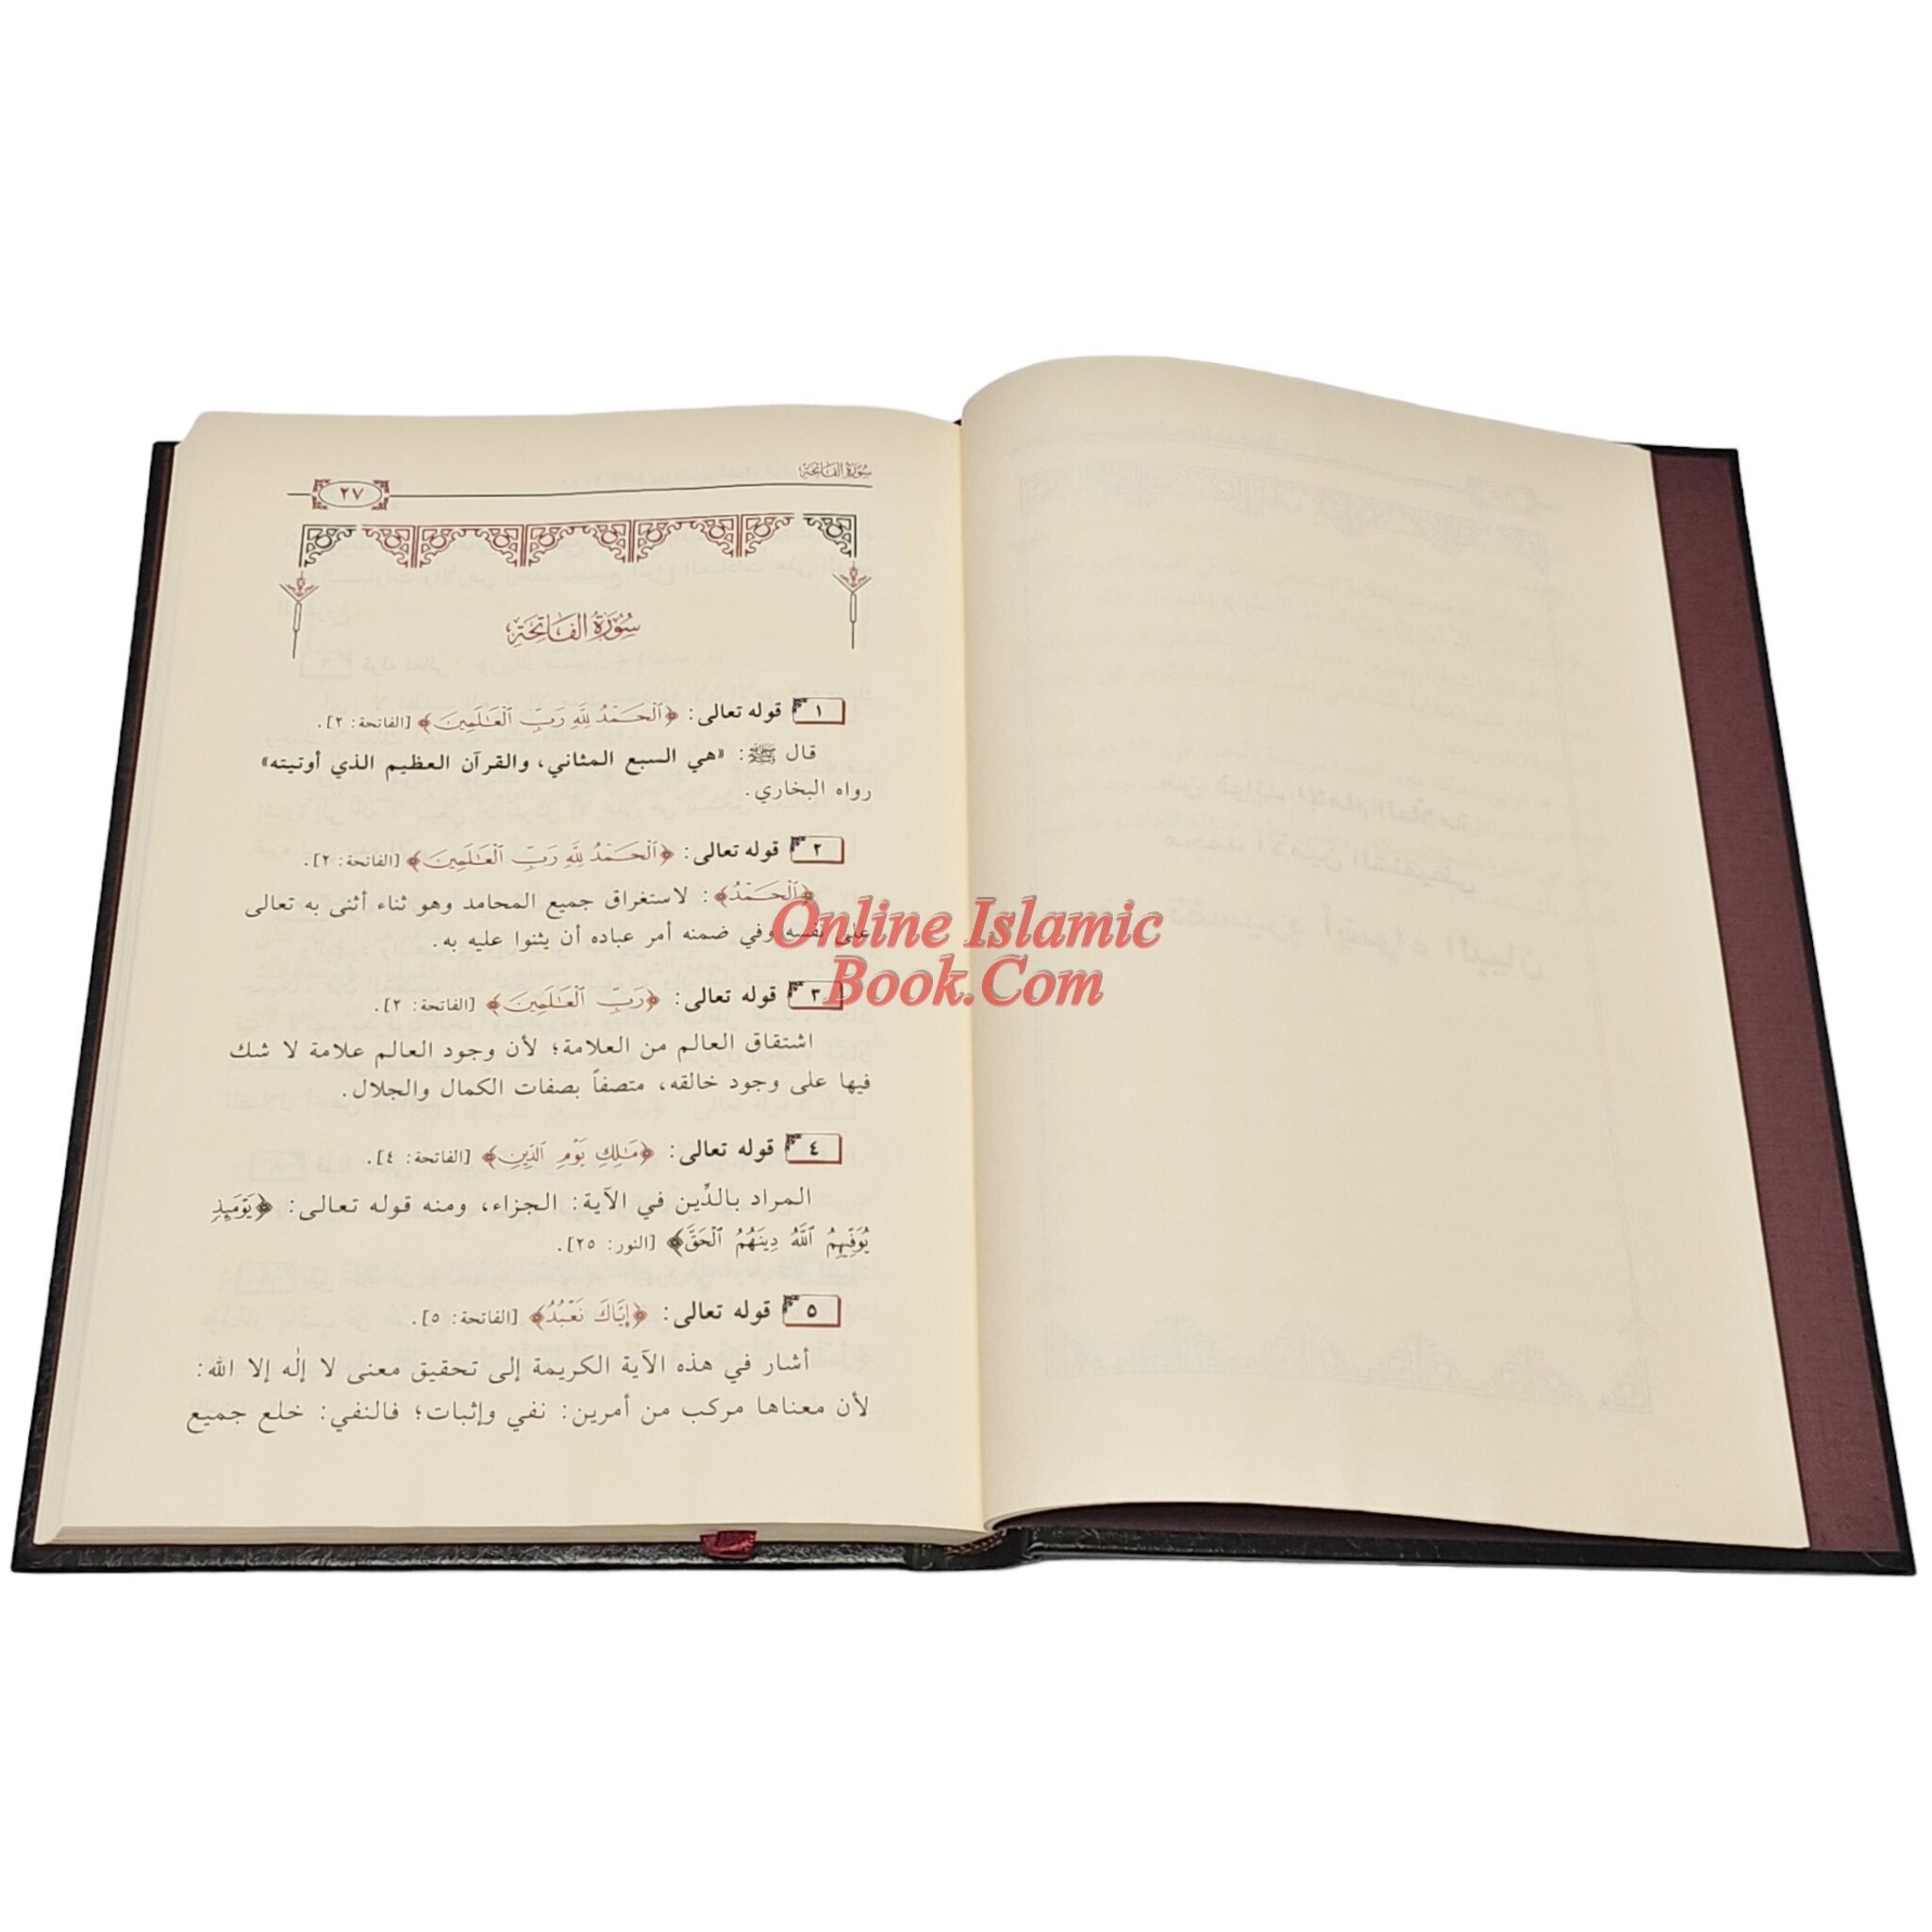 سورة الفاتحة
٢٧
سُورَةُ الفَاتِحَةِ
١ قوله تعالى: ﴿ٱلْحَمْدُ لِلَّهِ رَبِّ ٱلْعَٰلَمِينَ﴾ [الفاتحة: ٢].
قال ﷺ: «هي السبع المثاني، والقرآن العظيم الذي أوتيته»
رواه البخاري.
٢ قوله تعالى: ﴿ٱلْحَمْدُ لِلَّهِ رَبِّ ٱلْعَٰلَمِينَ﴾ [الفاتحة: ٢].
﴿ٱلْحَمْدُ﴾: لاستغراق جميع المحامد وهو ثناء أثنى به تعالى
على نفسه وفي ضمنه أمر عباده أن يثنوا عليه به.
٣ قوله تعالى: ﴿رَبِّ ٱلْعَٰلَمِينَ﴾ [الفاتحة: ٢].
اشتقاق العالم من العلامة؛ لأن وجود العالم علامة لا شك
فيها على وجود خالقه، متصفاً بصفات الكمال والجلال.
٤ قوله تعالى: ﴿مَٰلِكِ يَوْمِ ٱلدِّينِ﴾ [الفاتحة: ٤].
المراد بالدِّين في الآية: الجزاء، ومنه قوله تعالى: ﴿يَوْمَئِذٍ
يُوَفِّيهِمُ ٱللَّهُ دِينَهُمُ ٱلْحَقَّ﴾ [النور: ٢٥].
٥ قوله تعالى: ﴿إِيَّاكَ نَعْبُدُ﴾ [الفاتحة: ٥].
أشار في هذه الآية الكريمة إلى تحقيق معنى لا إلٰه إلا الله:
لأن معناها مركب من أمرين: نفي وإثبات؛ فالنفي: خلع جميع
Online Islamic
Book.Com